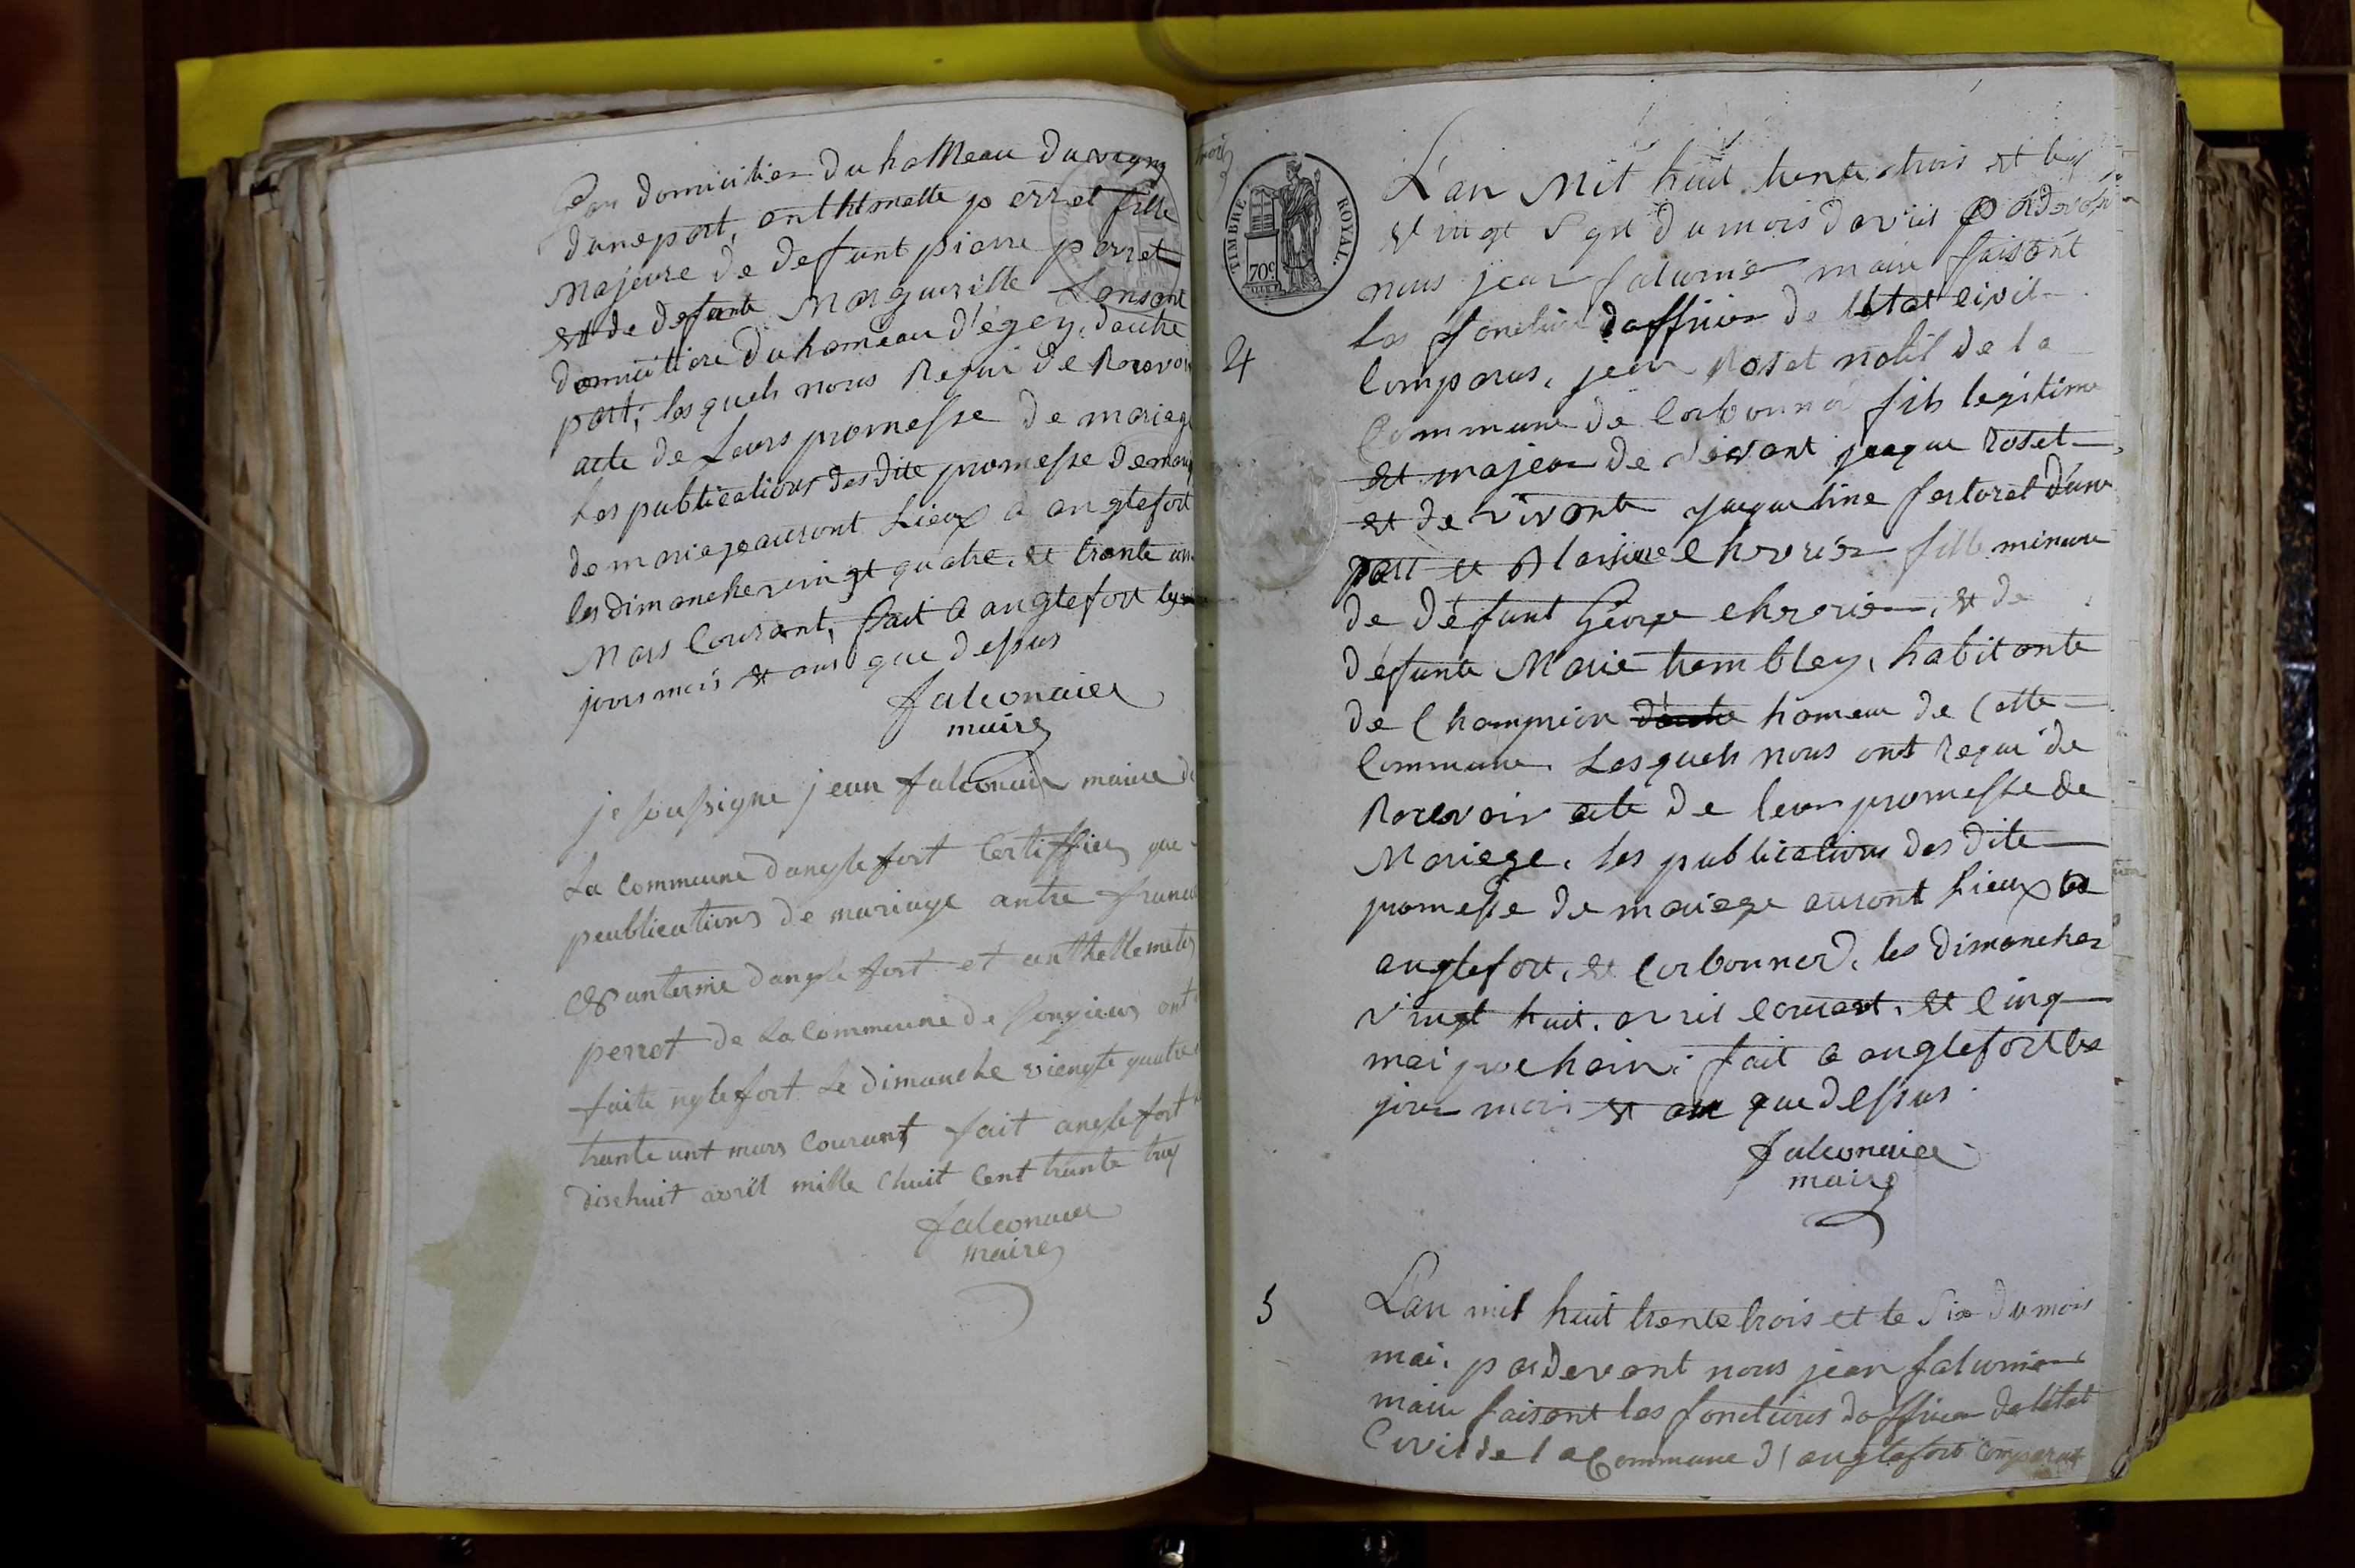 domicilier du hameau du vigny
dunepart, anthelmette perret fille
Majeure de defunt pierre perret
et de defunte Marguerithe
domicilière du hameau d'égey, dautre
part, lesquels nous Requi de Recevoir
acte de Leurs promesse de mariage
Les publications des dite promesse de
de mariage auront Lieux a anglefort
les dimanche vingt quatre et trante un
Mars Courant, fait a anglefort les
jours mois et ans que dessus
falconnier
maire
je soussigne jean falconnier maire de
La commune danglefort Certiffiey que
peublications de mariage antre
danglefort et anthellemete
perret de La Commune de Songieux ont
faite nglefort Le dimanche viengte quatre
trante unt mars Courant fait anglefort
dixhuit avril mille huit Cent trante troy
falconnier
maire
TIMBRE ROYAL.
70c
L'an Mil huit trente trois et le
et vingt Sept du mois davril pardevant
nous jean falconnier maire faisant
les fonction dofficier de létat civil
Comparus, jean Roset natif de la
Commune de Corbonnod fils legitime
et majeur de vivant jacque Roset
et de vivante jacqueline d'une
part et chevrier fille mineure
de défunt George chevrier, et de
défunte Marie tembley, habitante
de Champrion hameau de Cette
Commune. Lesquels nous ont Requi de
Recevoir acte de leur promesse de
Mariage, les publications des dite
promesse de mariage auront Lieux a
anglefort, et Corbonnod, les dimanches
vingt huit avril courant, et Cinq
mai prochain. fait a anglefort les
jour mois et an que dessus
falconnier
maire
4
5
L'an mil huit trente trois et le Six du mois
mai. pardevant nous jean falconnier
maire faisant les fonctions dofficier de létat
Civil de la Commune d'anglefort Comparut